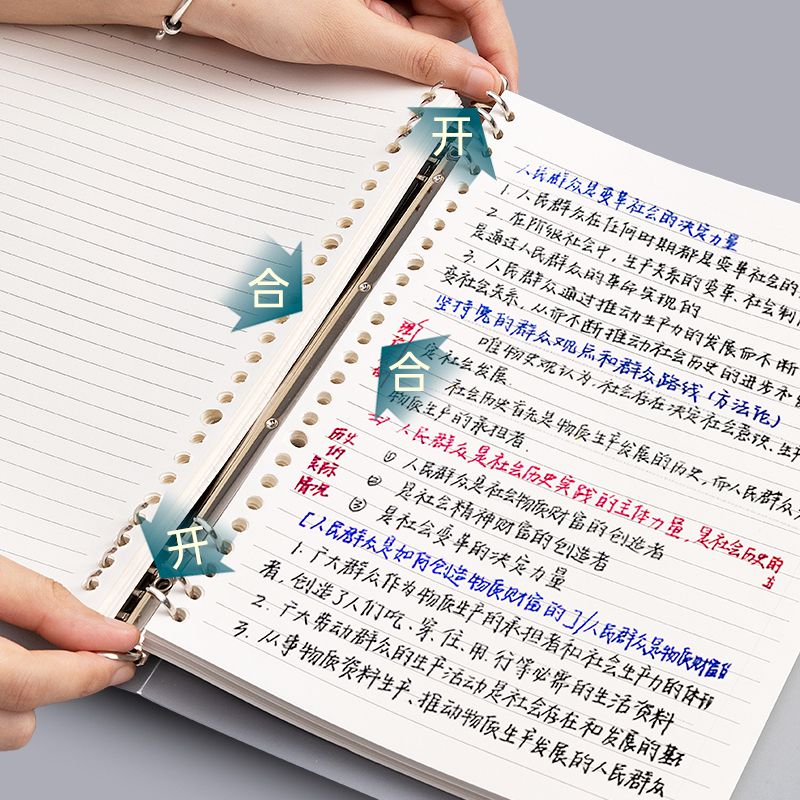 开
合
合
开
人民群众是变革社会的决定力量
1. 人民群众在任何时期都是变革社会的
2. 在阶级社会中，生产关系的变革、社会制
是通过人民群众的革命实现的
3. 人民群众通过推动生产力的发展而不断
变社会关系，从而不断推动社会历史的进步和
坚持党的群众观点和群众路线（方法论）
唯物史观认为，社会存在决定社会意识，生
定社会发展.
社会历史首先是物质生产发展的历史，而人民群众
物质生产的承担者.
⇒ 人民群众是社会历史实践的主体力量，是社会历史的
主
历史
的
实际
情况
① 人民群众是社会物质财富的创造者
② 是社会精神财富的创造者
③ 是社会变革的决定力量
[人民群众是如何创造物质财富的]/人民群众是物质财富
1. 广大群众作为物质生产的承担者和社会生产力的体现
者，创造了人们吃、穿、住、用、行等必需的生活资料
2. 广大劳动群众的生产活动是社会存在和发展的基
3. 从事物质资料生产、推动物质生产发展的人民群众